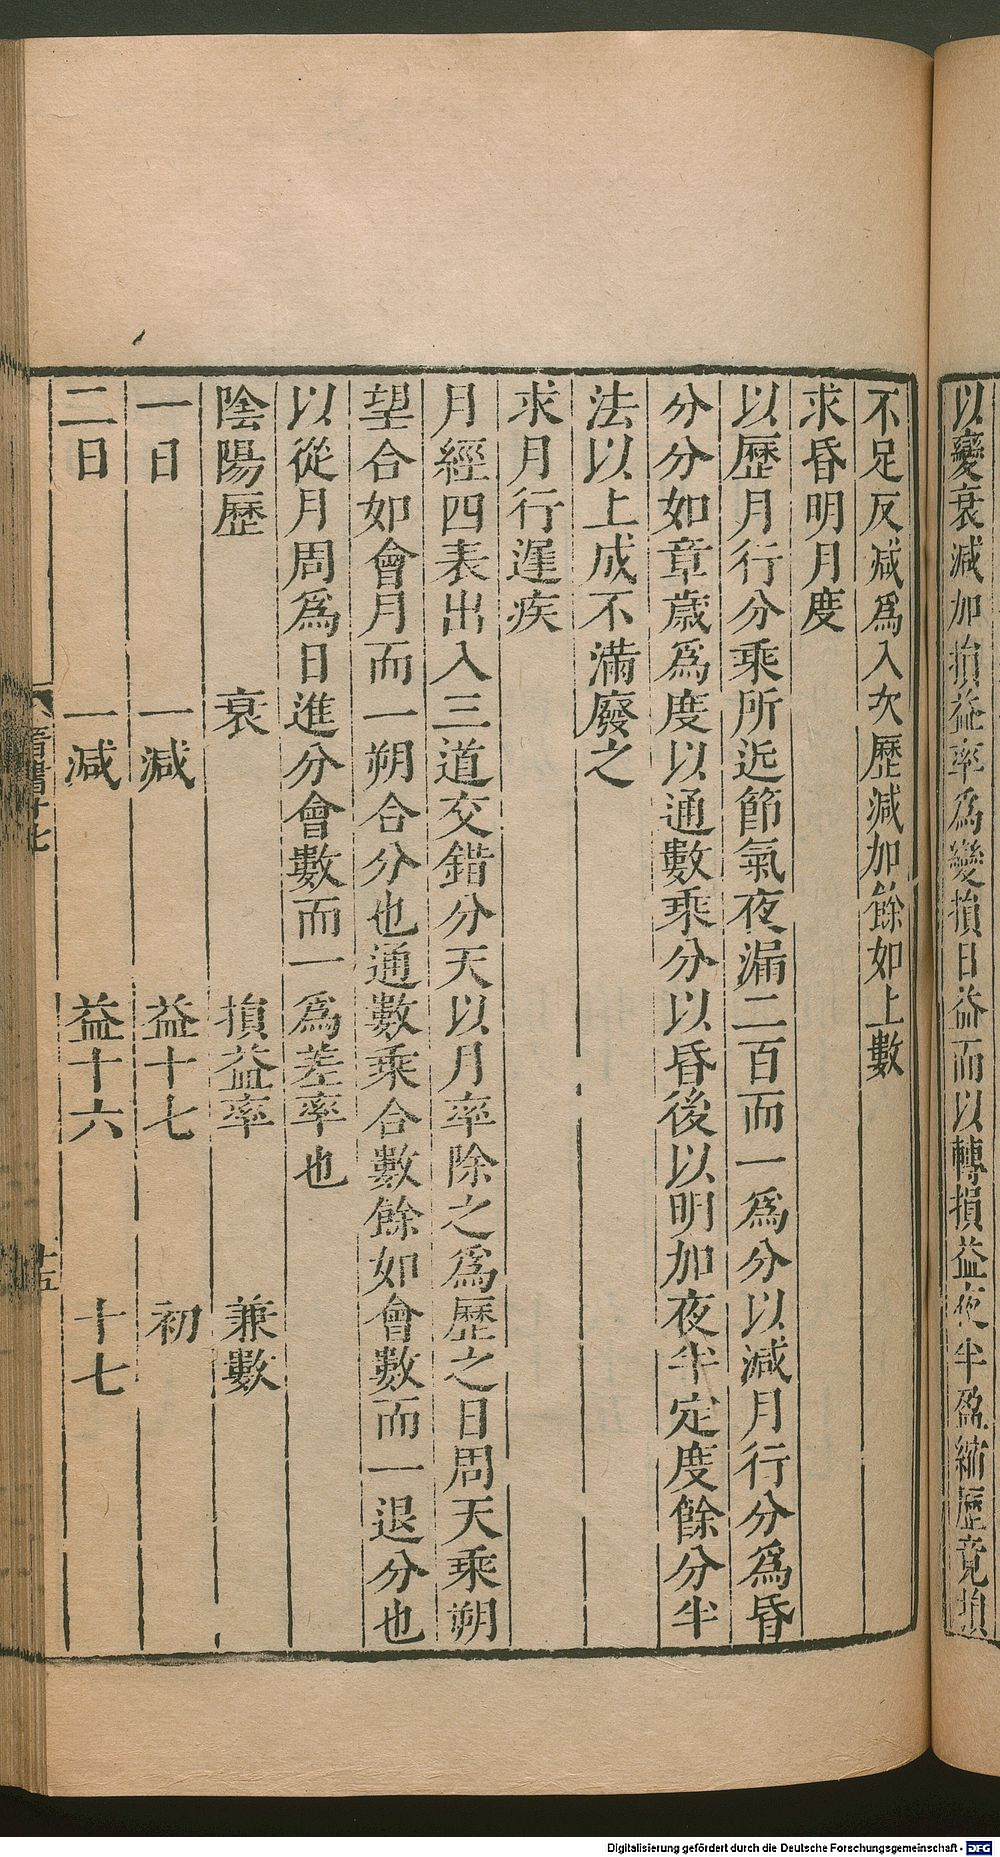 以變衰減加損益率爲變損日益而以轉損益夜半盈縮歷竟損
不足反減爲入次歷減加餘如上數
求昏明月度
以歷月行分乘所近節氣夜漏二百而一爲分以減月行分爲昏
分分如章歲爲度以通數乘分以昏後以明加夜半定度餘分半
法以上成不滿廢之
求月行遲疾
月經四表出入三道交錯分天以月率除之爲歷之日周天乘朔
望合如會月而一朔合分也通數乘合數餘如會數而一退分也
以從月周爲日進分會數而一爲差率也
陰陽歷 衰 損益率 兼數
一日 一減 益十七 初
二日 一減 益十六 十七
十五
Digitalisierung gefördert durch die Deutsche Forschungsgemeinschaft - DFG